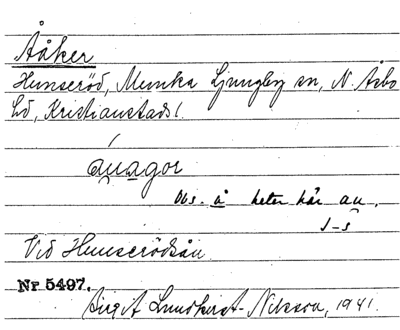 Ååker
Hunseröd, Munka Ljungby sn, N. Åsbo
hd, Kristianstads l.
áu̯agor
Obs. å heter här au̯.
J-s
Vid Hunserödsån
Nr 5497.
Birgit Lundquist-Nilsson, 1941.